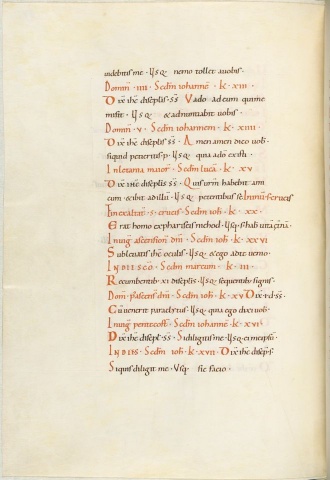 videbitis me · Usq; nemo tollet avobis ·
Domin̄ · IIII · Scdm̄ iohannē · k̄ · XIII ·
Dix̄ ihc̄ disēplis · s̄s̄ · Vado ad eum qui me
misit · Usq; & adnuntiabit vobis ·
Domin̄ · V · Scdm̄ iohannem · k̄ · XIIII ·
Dix̄ ihc̄ disēplis s̄s̄ · Amen amen dico vob̄ ·
siquid petieritis · p · Usq; quia a dō exivi ·
In letania maior̄ · Scdm̄ lucā · k̄ · XV
Dix̄ ihc̄ disēplis s̄s̄ · Quis urm̄ habebit ami
cum & ibit ad illū · Usq; petentibus se
In exaltat̄ · s̄ crucis · Scdm̄ ioh̄ · k̄ · XX ·
Erat homo ex pharisęis
In uiḡ ascension̄ dn̄i · Scdm̄ ioh̄ · k̄ · XXVI
Sublevatis ihc̄ oculis · Usq; & ego ad te venio ·
IN DIE SC̄O · Scdm̄ marcum · k̄ · III ·
Recumbentib · XI disēplis · Usq; sequentib · signis ·
Dom̄ · p̄ ascens̄ dn̄i · Scdm̄ ioh̄ · k̄ · XV Dix̄ · i · d · s̄s̄ ·
Cū venerit paraclytus · Usq; quia ego dixi vob̄ ·
In uiḡ pentecost̄ · Scdm̄ iohannē · k̄ · XVI
Dix̄ ihc̄ disēpl̄ · s̄s̄ · Si diligitis me · Usq; ei me ipsū
IN DIE S · Scdm̄ ioh̄ · k̄ · XVII · Dix̄ ihc̄ disēpl̄s
Siquis diligit me · Usq; sic facio ·